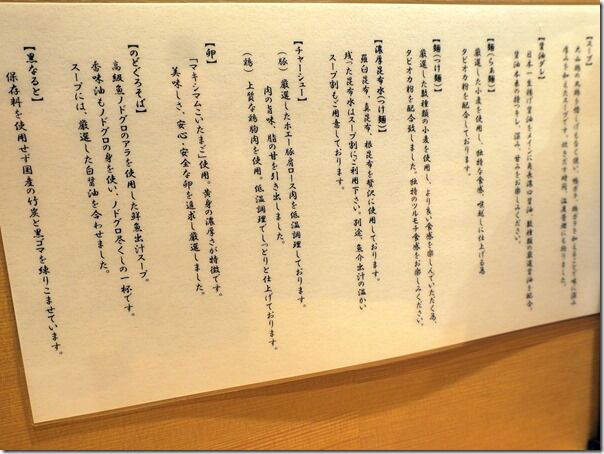 【スープ】
大山鶏の丸鶏を惜しげもなく使い、鴨ガラ、豚ガラを加えることで味に深み
厚みを加えたスープです。炊きだす時間、温度管理にも拘りました。
【醤油ダレ】
日本一生揚げ醤油をメインに再仕込み醤油、数種類の厳選醤油を配合。
醤油本来の持つキレ、深み、甘みをお楽しみください。
【麺(らぁ麺)】
厳選した小麦を使用し、独特な食感、喉越しに仕上げる為
タピオカ粉を配合しております。
【麺(つけ麺)】
厳選した数種類の小麦を使用し、より良い食感を楽しんでいただく為、
タピオカ粉を配合致しました。独特のツルモチ食感をお楽しみください。
【濃厚昆布水(つけ麺)】
羅臼昆布、真昆布、根昆布を贅沢に使用しております。
残った昆布水はスープ割にご利用下さい。別途、魚介出汁の温かい
スープ割もご用意しております。
【チャーシュー】
(豚) 厳選したホエー豚肩ロース肉を低温調理しております。
肉の旨味、脂の甘を引き出しました。
(鶏) 上質な鶏胸肉を使用。低温調理でしっとりと仕上げております。
【卵】
「マキシマムこいたまご」使用 黄身の濃厚さが特徴です。
美味しさ、安心・安全な卵を追求し厳選しました。
【のどぐろそば】
高級魚ノドグロのアラを使用した鮮魚出汁スープ。
香味油もノドグロの身を使い、ノドグロ尽くしの一杯です。
スープには、厳選した白醤油を合わせました。
【黒なると】
保存料を使用せず国産の竹炭と黒ゴマを練りこませています。